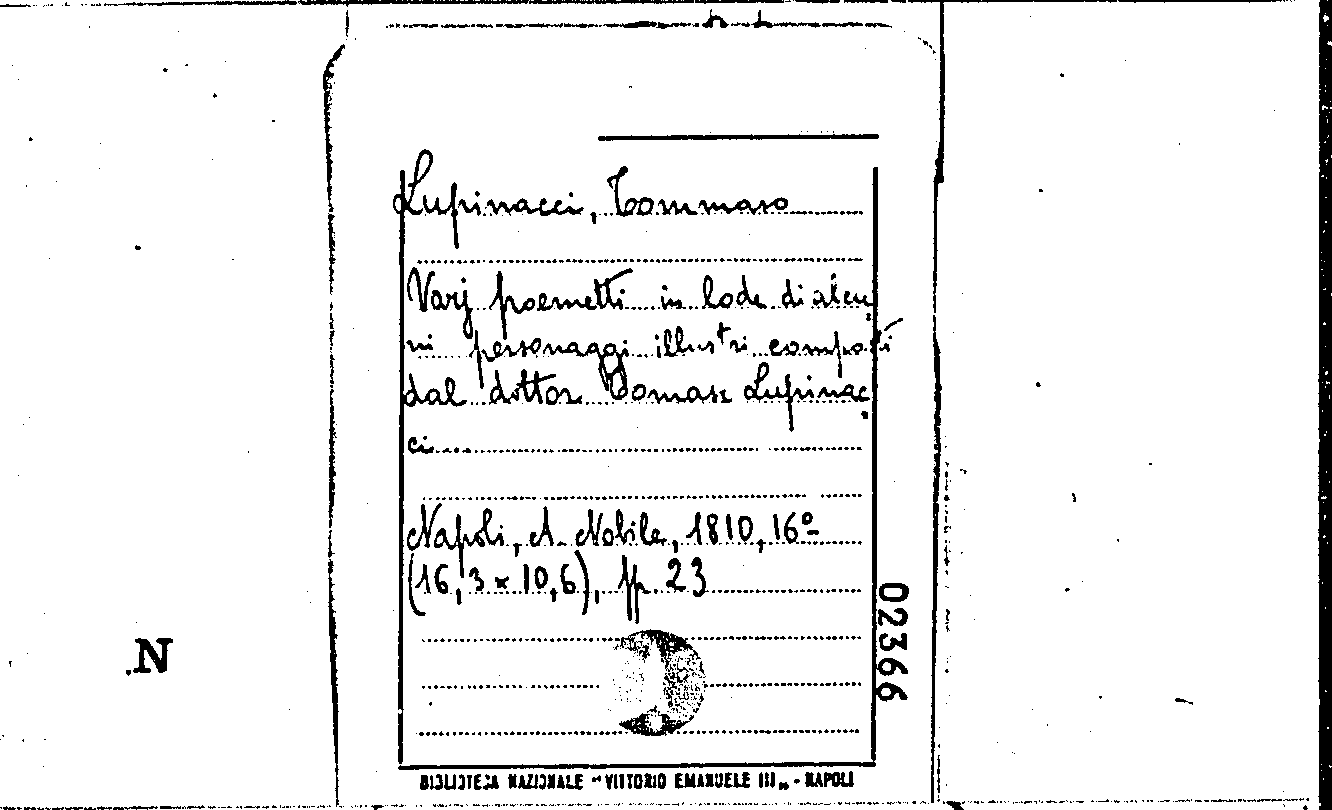 Lupinacci, Tommaso
Varj poemetti in lode di alcu
ni personaggi illustri composti
dal dottor Tomase Lupinac
ci....
Napoli, A. Nobile, 1810, 16º
(16,3 x 10,6), pp. 23
02366
N
BIBLIOTECA NAZIONALE "VITTORIO EMANUELE III„ - NAPOLI